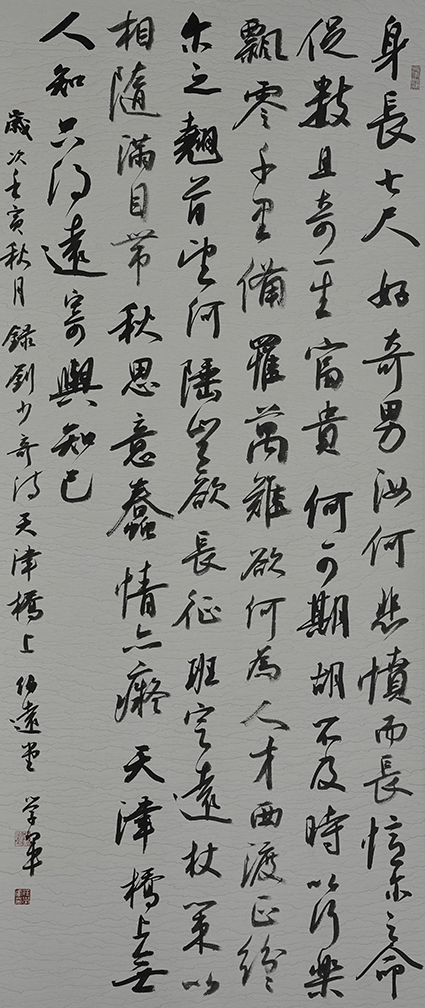 身長七尺好奇男汝何悲憤而長惦尔之命
促数且奇一生富貴何可期胡不及時以行樂
飄零千里備罹萬難欲何為人才西渡正紛紛
尔之翹首望何陲豈欲長征班定遠杖策以
相隨滿目帶秋思意蠢情亦癡天津橋上無
人知只得遠寄與知己
歲次壬寅秋月錄劉少奇诗天津橋上伯遠堂学军